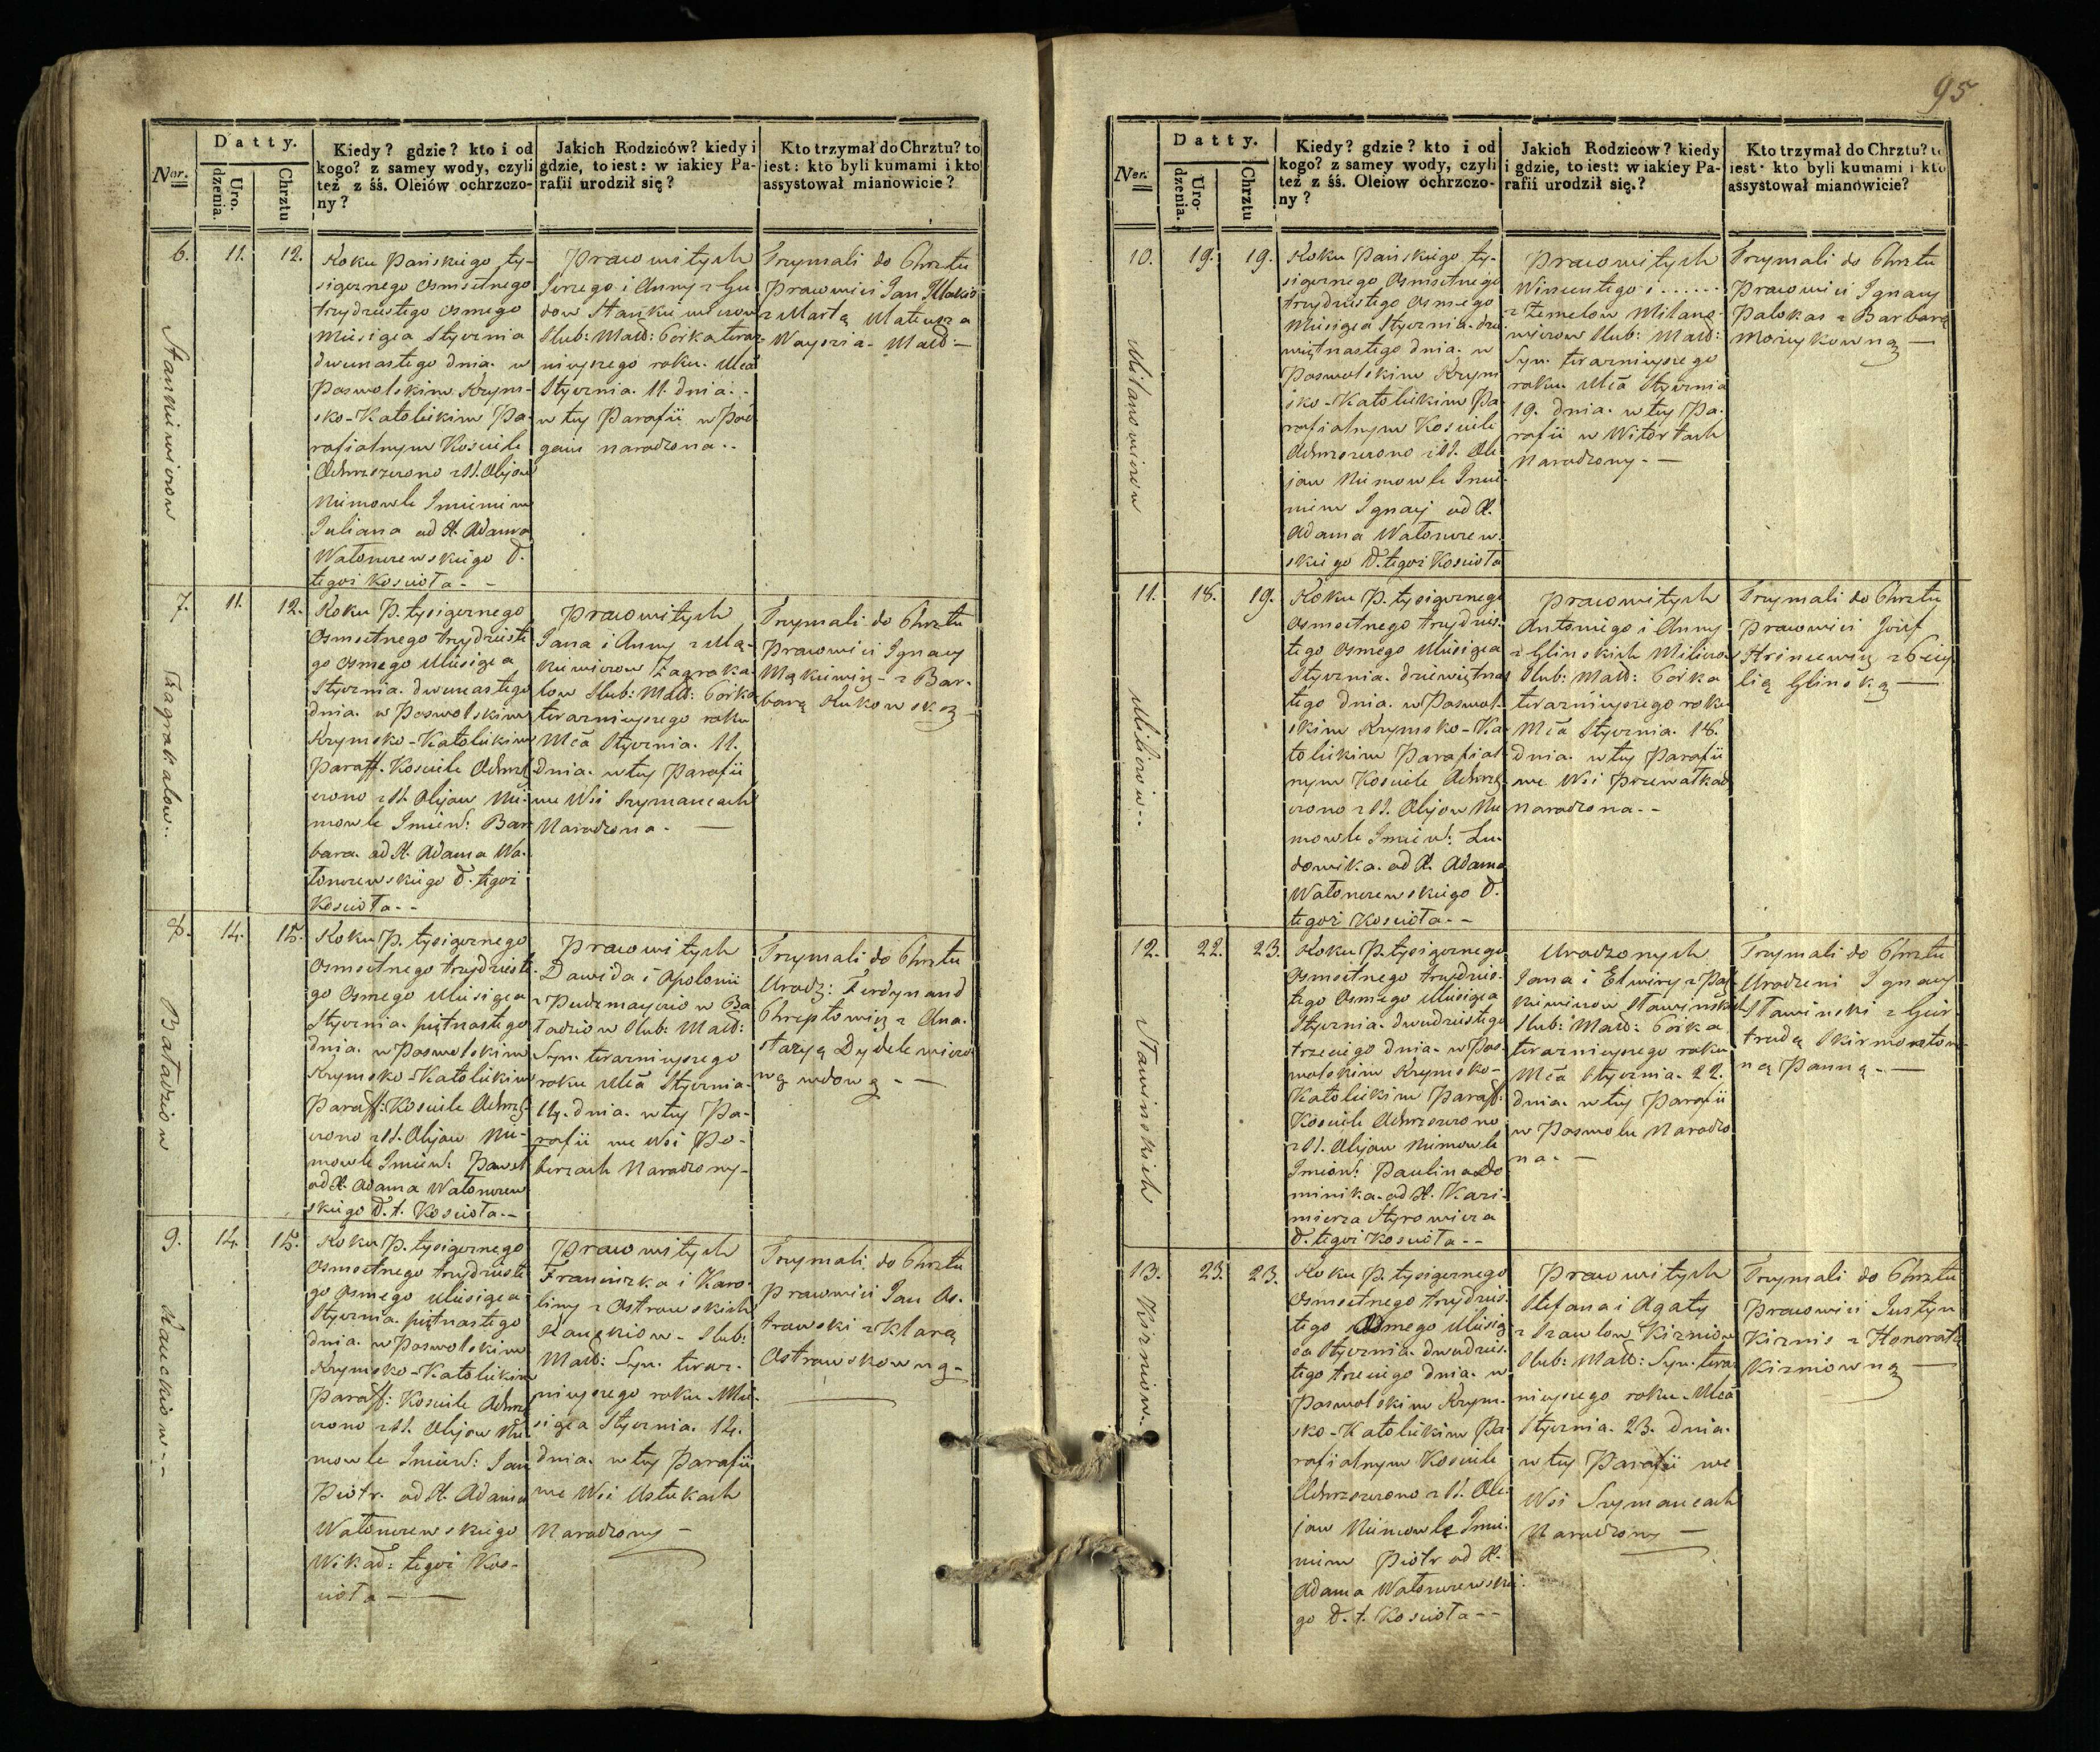 Datty.
Nar.
Uro.
dzenia.
Chrztu
Kiedy? gdzie? kto i od
kogo? z samey wody, czyli
też z śś. Oleiów ochrzczo-
ny?
Jakich Rodziców? kiedy i
gdzie, to iest: w iakiey Pa-
rafii urodził się?
Kto trzymał do Chrztu? to
iest: kto byli kumami i kto
assystował mianowicie?
6.
11.
12.
Roku Pańskiego ty-
siącznego Osmsetnego
trzydziestego osmego
Miesiąca Stycznia
dwunastego dnia. w
Poswolskim Rzym-
sko-Katolickim Pa-
rafialnym Kosciele
Ochrzczono z SS. Olejow
Niemowle Imieniem
Juliana od X. Adama
Watonczewskiego W.
tegoż Koscioła - -
Prawowitych
Jerzego i Anny z Gu
dow Stankiewiczow
Slub: Małż: Corka teraz-
nieyszego roku. Mca
Stycznia. 11. dnia. -
w tey Parafii w Poe-
gain narodzona - -
Trzymali do Chrztu
Prawowici Jan
z Martą Mateusza
Małż: -
7.
11.
12.
Roku P. tysiącznego
Osmsetnego trzydzieste
go Osmego Miesiąca
Stycznia. dwunastego
dnia. w Poswolskim
Rzymsko-Katolickim
Paraff. Kosciele Ochrz
czono z SS. Olejow Nie-
mowle Imien: Bar
bara. od X. Adama Wa-
tonczewskiego W. tegoż
Kosciola - -
Prawowitych
Jana i Anny z Mac-
kiewiczow Zagraka-
low Slub: Małż: Corka
teraznieyszego roku
Mca Stycznia. 11.
dnia. w tey Parafii
we Wsi Szymancach
Narodzona. -
Trzymali do Chrztu
Prawowici Ignacy
Mackiewicz - z Bar-
barą Rukowską -
8.
14.
15.
Roku P. tysiącznego
Osmsetnego trzydzieste-
go Osmego Miesiąca
Stycznia. piętnastego
dnia. w Poswolskim
Rzymsko-Katolickim
Paraff: Kosciele Ochrz-
czono z SS. Olejow Nie-
mowle Imien: Paweł
od X. Adama Watonczew
skiego W. t. Kosciola. -
Prawowitych
Dawida i Apolonii
z Pudzmayciow Ba
ładziow Slub: Małż:
Syn. teraznieyszego
roku Mca Stycznia-
14. dnia. w tey Pa-
rafii we Wsi Po-
berzach Narodzony -
Trzymali do Chrztu
Urodz: Ferdynand
Chreptowicz z Ana-
stazyą Dydelewiczo
wą wdową - -
9.
14.
15.
Roku P. tysiącznego
Osmsetnego trzydzieste
go Osmego Miesiąca
Stycznia. piętnastego
dnia. w Poswolskim
Rzymsko-Katolickim
Paraff: Kosciele Ochrz
czono z SS. Olejow Nie
mowle Imien: Jan
Piotr. od X. Adama
Watonczewskiego
Wikar: tegoż Kos-
ciola - -
Prawowitych
Franciszka i Karo-
liny z Ostrowskich
Rauckiow - Slub:
Małż: Syn. teraz-
nieyszego roku - Mie-
siąca Stycznia. 14.
dnia. w tey Parafii
we Wsi Ostukach
Narodzony -
Trzymali do Chrztu
Prawowici Jan Os-
trowski z Klarą
Ostrowskowną -
Stankiewiczow
Zagrakalow - -
Baładziow
Rauckiow - -
95.
Datty.
Ner.
Uro-
dzenia.
Chrztu
Kiedy? gdzie? kto i od
kogo? z samey wody, czyli
też z śś. Oleiow ochrzczo-
ny?
Jakich Rodziców? kiedy
i gdzie, to iest: w iakiey Pa-
rafii urodził się.?
Kto trzymał do Chrztu? to
iest: kto byli kumami i kto
assystował mianowicie?
10.
19.
19.
Roku Pańskiego ty-
siącznego Osmsetnego
trzydziestego Osmego
Miesiąca Stycznia. dzie
więtnastego dnia. w
Poswolskim Rzym
sko-Katolickim Pa-
rafialnym Kosciele
Ochrzczono z SS. Ole
jow Niemowle Imie-
niem Ignacy od X.
Adama Watonczew-
skiego W. tegoż Kosciola
Prawowitych
Wincentego i ......
z Zemelow Milano-
wiczow Slub: Małż:
Syn. teraznieyszego
roku Mca Stycznia
19. dnia. w tey Pa-
rafii w Witortach
Narodzony. -
Trzymali do Chrztu
Prawowici Ignacy
Palokas z Barbarą
Moniykowną -
11.
18.
19.
Roku P. tysiącznego
Osmsetnego trzydzies-
tego Osmego Miesiąca
Stycznia. dziewiętnas
tego dnia. w Poswol-
skim Rzymsko-Ka-
tolickim Parafial-
nym Kosciele Ochrz-
czono z SS. Olejow Nie
mowle Imien: Lu-
dowika. od X. Adama
Watonczewskiego W.
tegoż Kosciola - -
Prawowitych
Antoniego i Anny
z Glinskich Miliczow
Slub: Małż: Corka
terazniejszego roku
Mca Stycznia. 18.
dnia. w tey Parafii
we Wsi Przewałkach
Narodzona - -
Trzymali do Chrztu
Prawowici Jozef
Hrincewicz z Cecy
lią Glinską -
12.
22.
23.
Roku P. tysiącznego
Osmsetnego trzydzies-
tego Osmego Miesiąca
Stycznia. dwudziestego
trzeciego dnia - w Pos-
wolskim Rzymsko-
Katolickim Paraff:
Kosciele Ochrzczono
z SS. Olejow Niemowle
Imion: Paulina Do
minika. od X. Kazi-
mierza Styrowicza
W. tegoż Kosciola - -
Urodzonych
Jana i Elwiry z Pac
kiewiczow Sławinskich
Slub: Małż: Corka
terazniejszego roku
Mca Stycznia. 22.
dnia. w tey Parafii
w Poswolu Narodzo
na. -
Trzymali do Chrztu
Urodzeni Ignacy
Sławinski z Gier-
trudą Skirmontow-
ną Panną. -
13.
23.
23.
Roku P. tysiącznego
Osmsetnego trzydzies-
tego Osmego Miesią
ca Stycznia. dwudzies-
tego trzeciego dnia - w
Poswolskim Rzym-
sko-Katolickim Pa-
rafialnym Kosciele
Ochrzczono z SS. Ole-
jow Niemowle Imie-
niem Piotr od X.
Adama Watonczewskie-
go W. t. Kosciola - -
Prawowitych
Stefana i Agaty
z Szawlow Kirniow
Slub: Małż: Syn. teraz
nieyszego roku - Mca
Stycznia. 23. dnia.
w tey Parafii we
Wsi Szymancach
Narodzony -
Trzymali do Chrztu
Prawowici Justyn
Kirnis z Honoratą
Kirniowną -
Milanowiczow
Miliczow - -
Sławinskich
Kirniow -